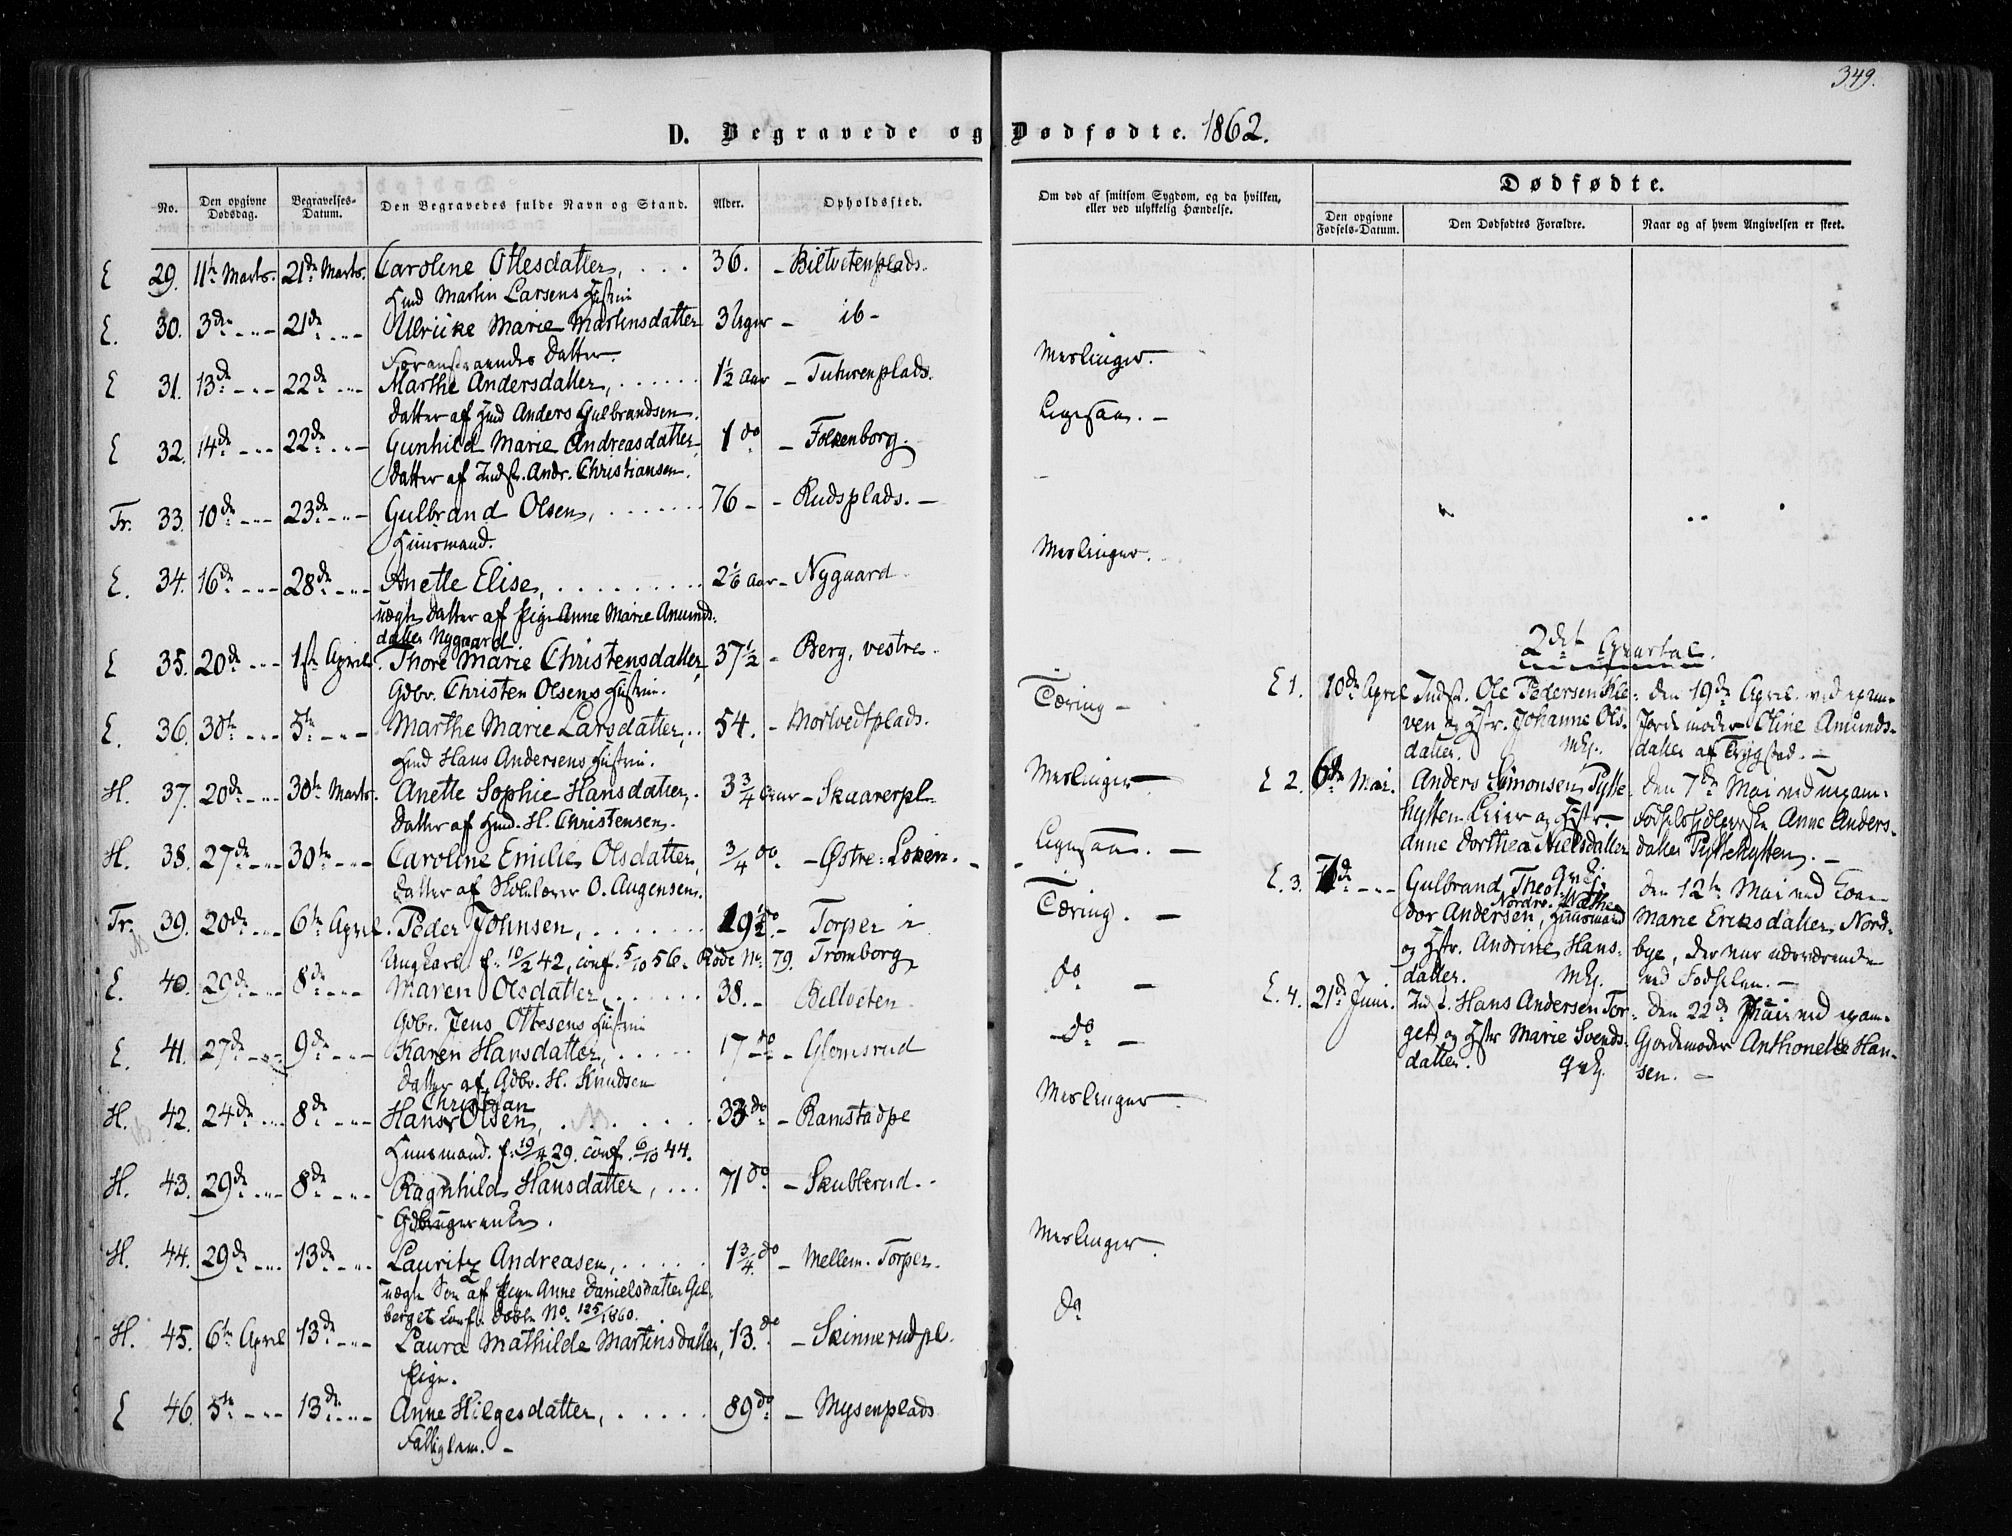 349.
D. Begravede og Dødfødte. 1862.
No.
Den opgivne Dødsdag.
Begravelses-Datum.
Den Begravedes fulde Navn og Stand.
Alder.
Opholdssted.
Om død af smitsom Sygdom, og da hvilken, eller ved ulykkelig Hændelse.
Dødfødte.
Den opgivne Fødsels-Datum.
Den Dødfødtes Forældre.
Naar og af hvem Angivelsen er skeet.
E 29. 11te Marts. 21de Marts. Caroline Ottesdatter, . . . 36. - Biltvetenplads.
Hmd Martin Larsens Hustru
E. 30. 3de - - - 21de - - - Ulrikke Marie Martinsdatter 3 Uger - ib -
Foranstaaendes Datter.
E 31. 13de - - - 22de - - - Marthe Andersdatter, . . . . . 1½ Aar - Tuturenplads. Meslinger.
Datter af Hmd Anders Gulbrandsen.
E 32. 14de - - - 22de - - - Gunhild Marie Andreasdatter, 1 do - Folkenborg. Ligesaa. -
Datter af Indst. Andr. Christiansen.
Tr. 33. 10de - - - 23de - - - Gulbrand Olsen, . . . . . . 76 - - Rudsplads. -
Huusmand.
E. 34. 16de - - - 28de - - - Anette Elise, . . . . . . . 2⅙ Aar - Nygaard. Meslinger.
uægte Datter af Pige Anne Marie Amunds-
datter Nygaard.
E 35. 20de - - - 1ste April. Thore Marie Christensdatter, 37½ - Berg, vestre.
Gdbr. Christen Olsens Hustru.
E. 36. 30te - - - 5te - - - Marthe Marie Larsdatter, . . 54. - Mortvedtplads. Tæring -
Hmd Hans Andersens Hustru.
H. 37. 20de - - - 30te Marts. Anette Sophie Hansdatter, . 3¾ Aar - Skaarerpl. Meslinger -
Datter af Hmd. H. Christensen.
H. 38. 27de - - - 30te - - - Caroline Emilie Olsdatter, ¾ do - Østre Løken. - Ligesaa. -
Datter af Skolelærer O. Augensen.
Tr. 39. 20de - - - 6te April. Peder Johnsen, . . . . . . 19½ do - Torper i Tæring. -
Ungkarl f. 10/2 42, conf. 5/10 56. Rode No. 79. Tromborg
E. 40. 29de - - - 8de - - - Maren Olsdatter, . . . . . 38. - Biltveten do -
Gdbr. Jens Ottesens Hustru
E. 41. 27de - - - 9de - - - Karen Hansdatter, . . . . . 17 do - Glomsrud do -
Datter af Gdbr. H. Knudsen
Christian
H. 42. 24de - - - 8de - - - Hans Olsen, . . . . . . . 33 do - Ramstadpl Meslinger.
Huusmand. f. 19/4 29. conf. 6/10 44.
H. 43. 29de - - - 8de - - - Ragnhild Hansdatter, . . . 71 do - Skubberud. -
Gdbrugerenke.
H. 44. 29de - - - 13de - - - Lauritz Andreasen, . . . . . 1¾ do - Mellem-Torper. Meslinger.
uægte Søn af Pige Anne Danielsdatter Gil-
berget Conf. Døbte No. 125/1860.
H. 45. 6te April 13de - - - Laura Mathilde Martinsdatter, 13. do - Skinnerudpl. do
Pige.
E 46. 5te - - - 13de - - - Anne Helgesdatter, . . . . . 89 do - Mysenplads
Fattiglem. -
2det Quartal.
E 1. 10de April Indst. Ole Pedersen Kle-
ven og Hstr. Johanne Ols-
datter.
den 19de April. ved
Jordemoder Oline Amunds-
datter af Trygstad. -
E 2. 6te Mai. Anders Simonsen Pytte-
hytten Leier og Hstr.
Anne Dorthea Nielsdatter
den 7de Mai ved
Fødselshjelperske Anne Anders-
datter Pyttehytten. -
E. 3. 7de - - - Gulbrand Theo-
dor Andersen, Huusmand
og Hstr. Andrine Hans-
datter.
den 12te Mai ved
Marie Eriksdatter Nord-
bye, der var nærværende
ved Fødselen. -
E. 4. 21de Juni. Indst. Hans Andersen Tor-
get og Hstr Marie Svends-
datter.
den 22de Juni ved
Gjordemoder Anthonette Han-
sen. -